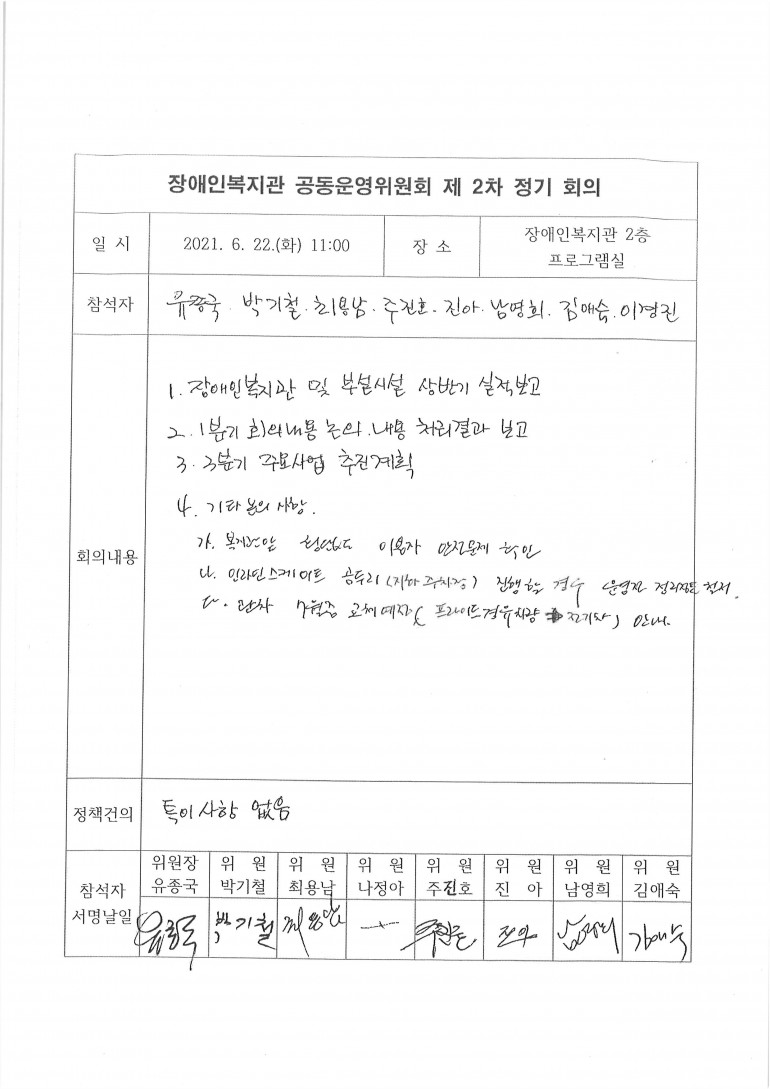 장애인복지관 공동운영위원회 제 2차 정기 회의
일 시 2021. 6. 22.(화) 11:00 장 소 장애인복지관 2층
프로그램실
참석자 유종국. 박기철. 최용남. 주진호. 진아. 남영희. 김애숙. 이경진
회의내용
1. 장애인복지관 및 부설시설 상반기 실적보고
2. 1분기 회의내용 논의.내용 처리결과 보고
3. 3분기 주요사업 추진계획
4. 기타 논의 사항.
가. 복지관앞 이용자 안전문제 확인
나. 인라인스케이트 공두리(지하 주차장) 진행할 경우
다. 관차 7월중 교체예정( 프라이드경유차량 전기차) 안내.
정책건의 특이사항 없음
참석자
서명날일
위원장 위 원 위 원 위 원 위 원 위 원 위 원 위 원
유종국 박기철 최용남 나정아 주진호 진 아 남영희 김애숙
유종국 박기철 최용남 주진호 진아 남영희 김애숙